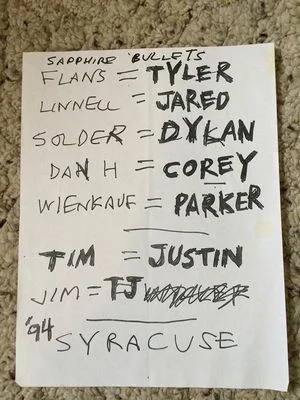 SAPPHIRE BULLETS
FLANS = TYLER
LINNELL = JARED
SOLDER = DYLAN
DAN H = COREY
WIENKAUF = PARKER
TIM = JUSTIN
JIM = TJ
'94
SYRACUSE